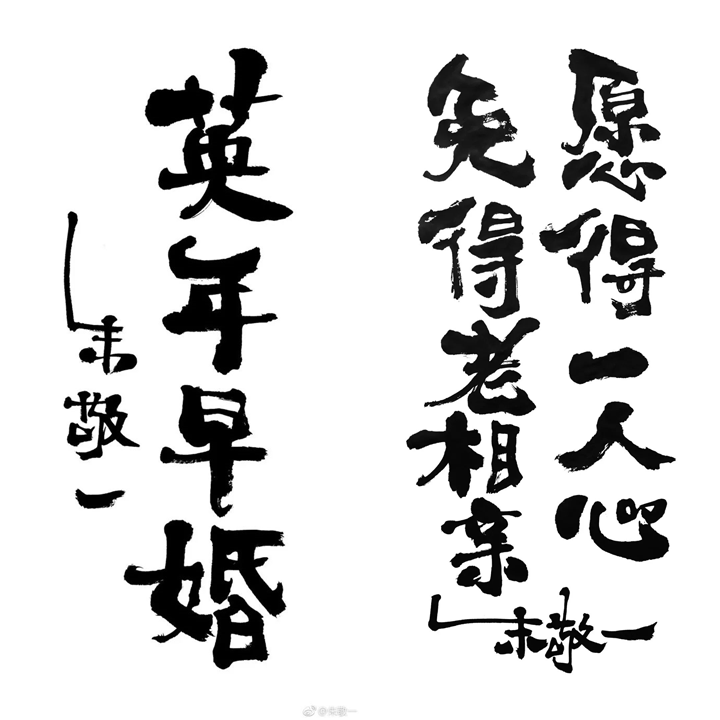 愿得一人心
免得老相亲
朱敬一
英年早婚
朱敬一
@朱敬一